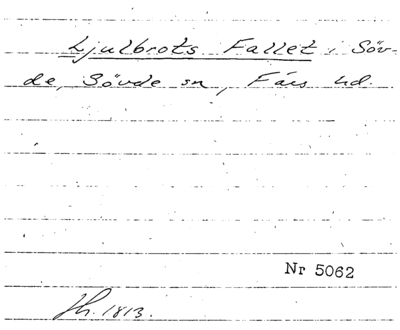 Hjulbrots Fallet i Söv-
de, Sövde sn, Färs hd.
Nr 5062
Jh. 1813.